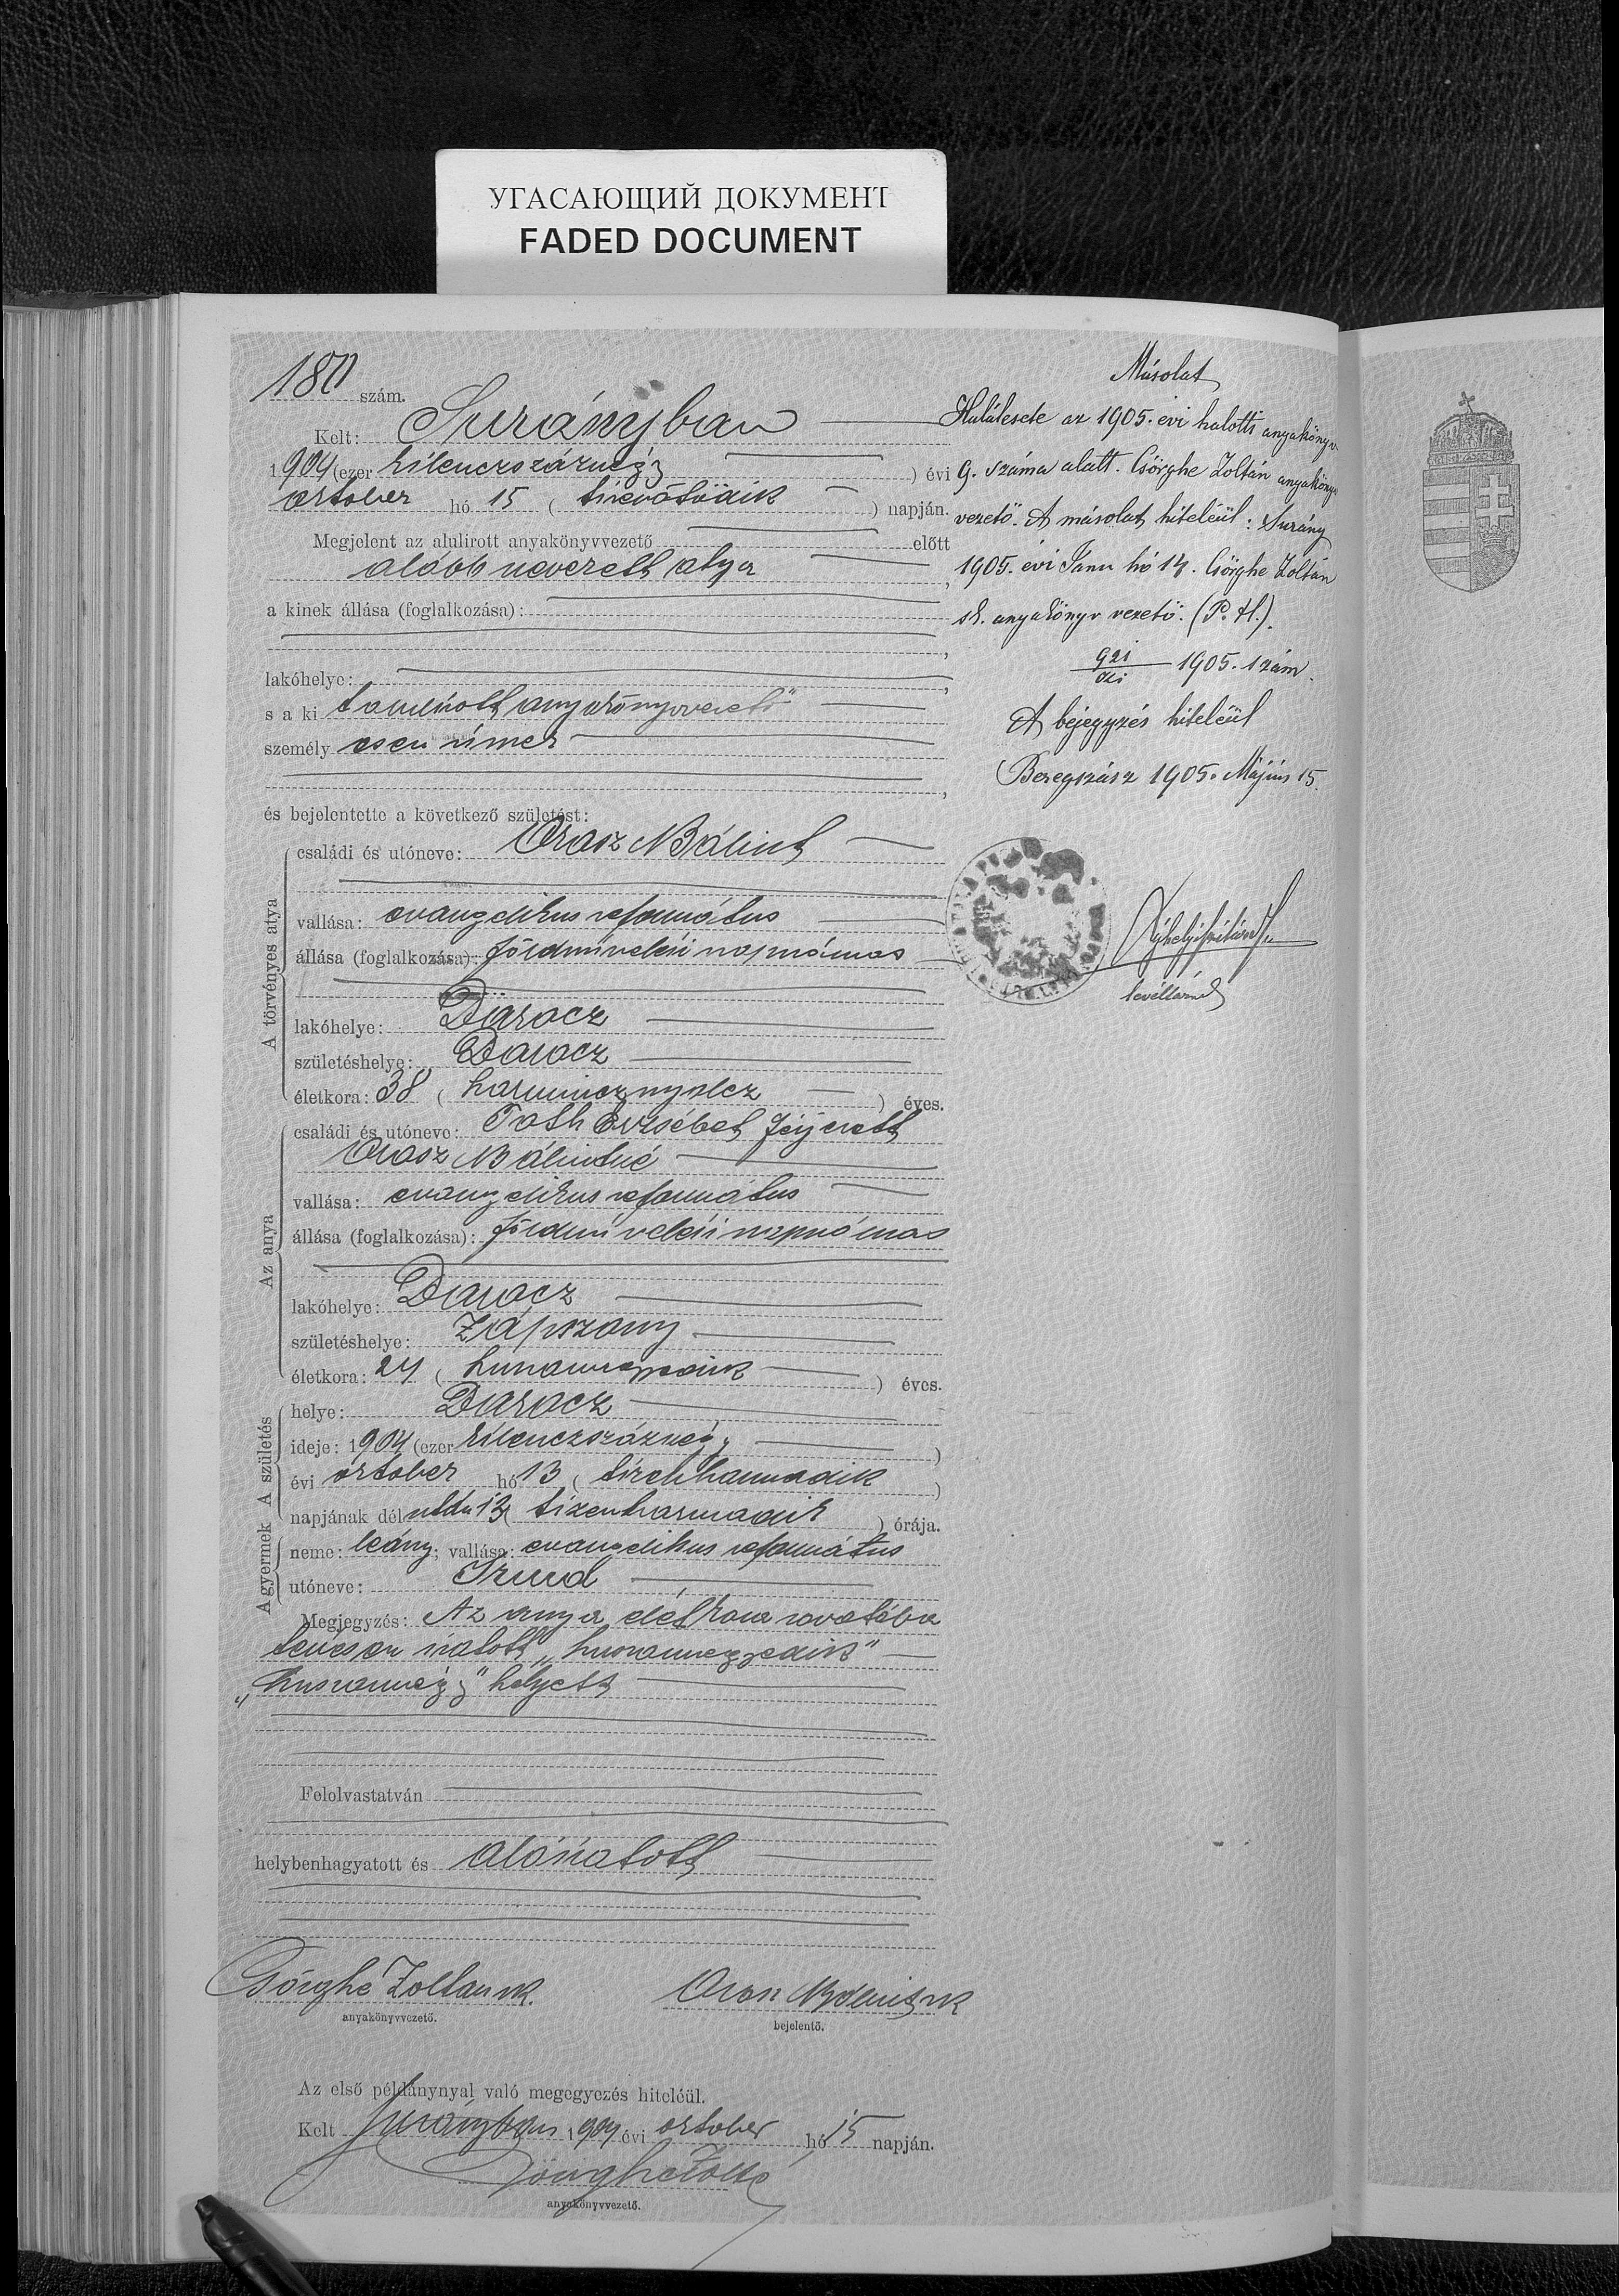 УГАСАЮЩИЙ ДОКУМЕНТ
FADED DOCUMENT
180 szám.
Kelt: Surányban
1904 (ezer kilenczszáznégy) évi
october hó 15 (tizenötödik) napján.
Megjelent az alulirott anyakönyvvezető előtt
alább nevezett atya,
a kinek állása (foglalkozása):
lakóhelye:
s a ki anyakönyvvezető
személy
és bejelentette a következő születést:
A törvényes atya
családi és utóneve: Orosz Bálint
vallása: evangelikus református
állása (foglalkozása): földmívelési napszámos
lakóhelye: Darócz
születéshelye: Darócz
életkora: 38 (harmincznyolcz) éves.
Az anya
családi és utóneve: Toth Erzsébet férjezett
Orosz Bálintné
vallása: evangelikus református
állása (foglalkozása): földmívelési napszámos
lakóhelye: Darócz
születéshelye: Zápszony
életkora: 24 (huszonnegyedik) éves.
A születés
helye: Darócz
ideje: 1904 (ezer kilenczszáznégy)
évi october hó 13 (tizenharmadik)
napjának dél (tizenharmadik) órája.
A gyermek
neme: leány; vallása: evangelikus református
utóneve:
Megjegyzés: Az anya életkora rovatába
íratott „huszonnegyedik"
„huszonnégy" helyett
Felolvastatván
helybenhagyatott és aláíratott
Csörghe Zoltán sk.
anyakönyvvezető.
Orosz Bálint sk
bejelentő.
Az első példánynyal való megegyezés hiteléül.
Kelt Surányban 1904 évi october hó 15 napján.
Csörghe Zoltán
anyakönyvvezető.
Másolat
Halálesete az 1905. évi halotti anyakönyv
9. száma alatt. Csörghe Zoltán anyakönyv
vezető. A másolat hiteléül: Surány
1905. évi Janu hó 14. Csörghe Zoltán
sk. anyakönyv vezető. (P. H.).
1905. szám.
A bejegyzés hiteléül
Beregszász 1905. Május 15.
levéltárnok